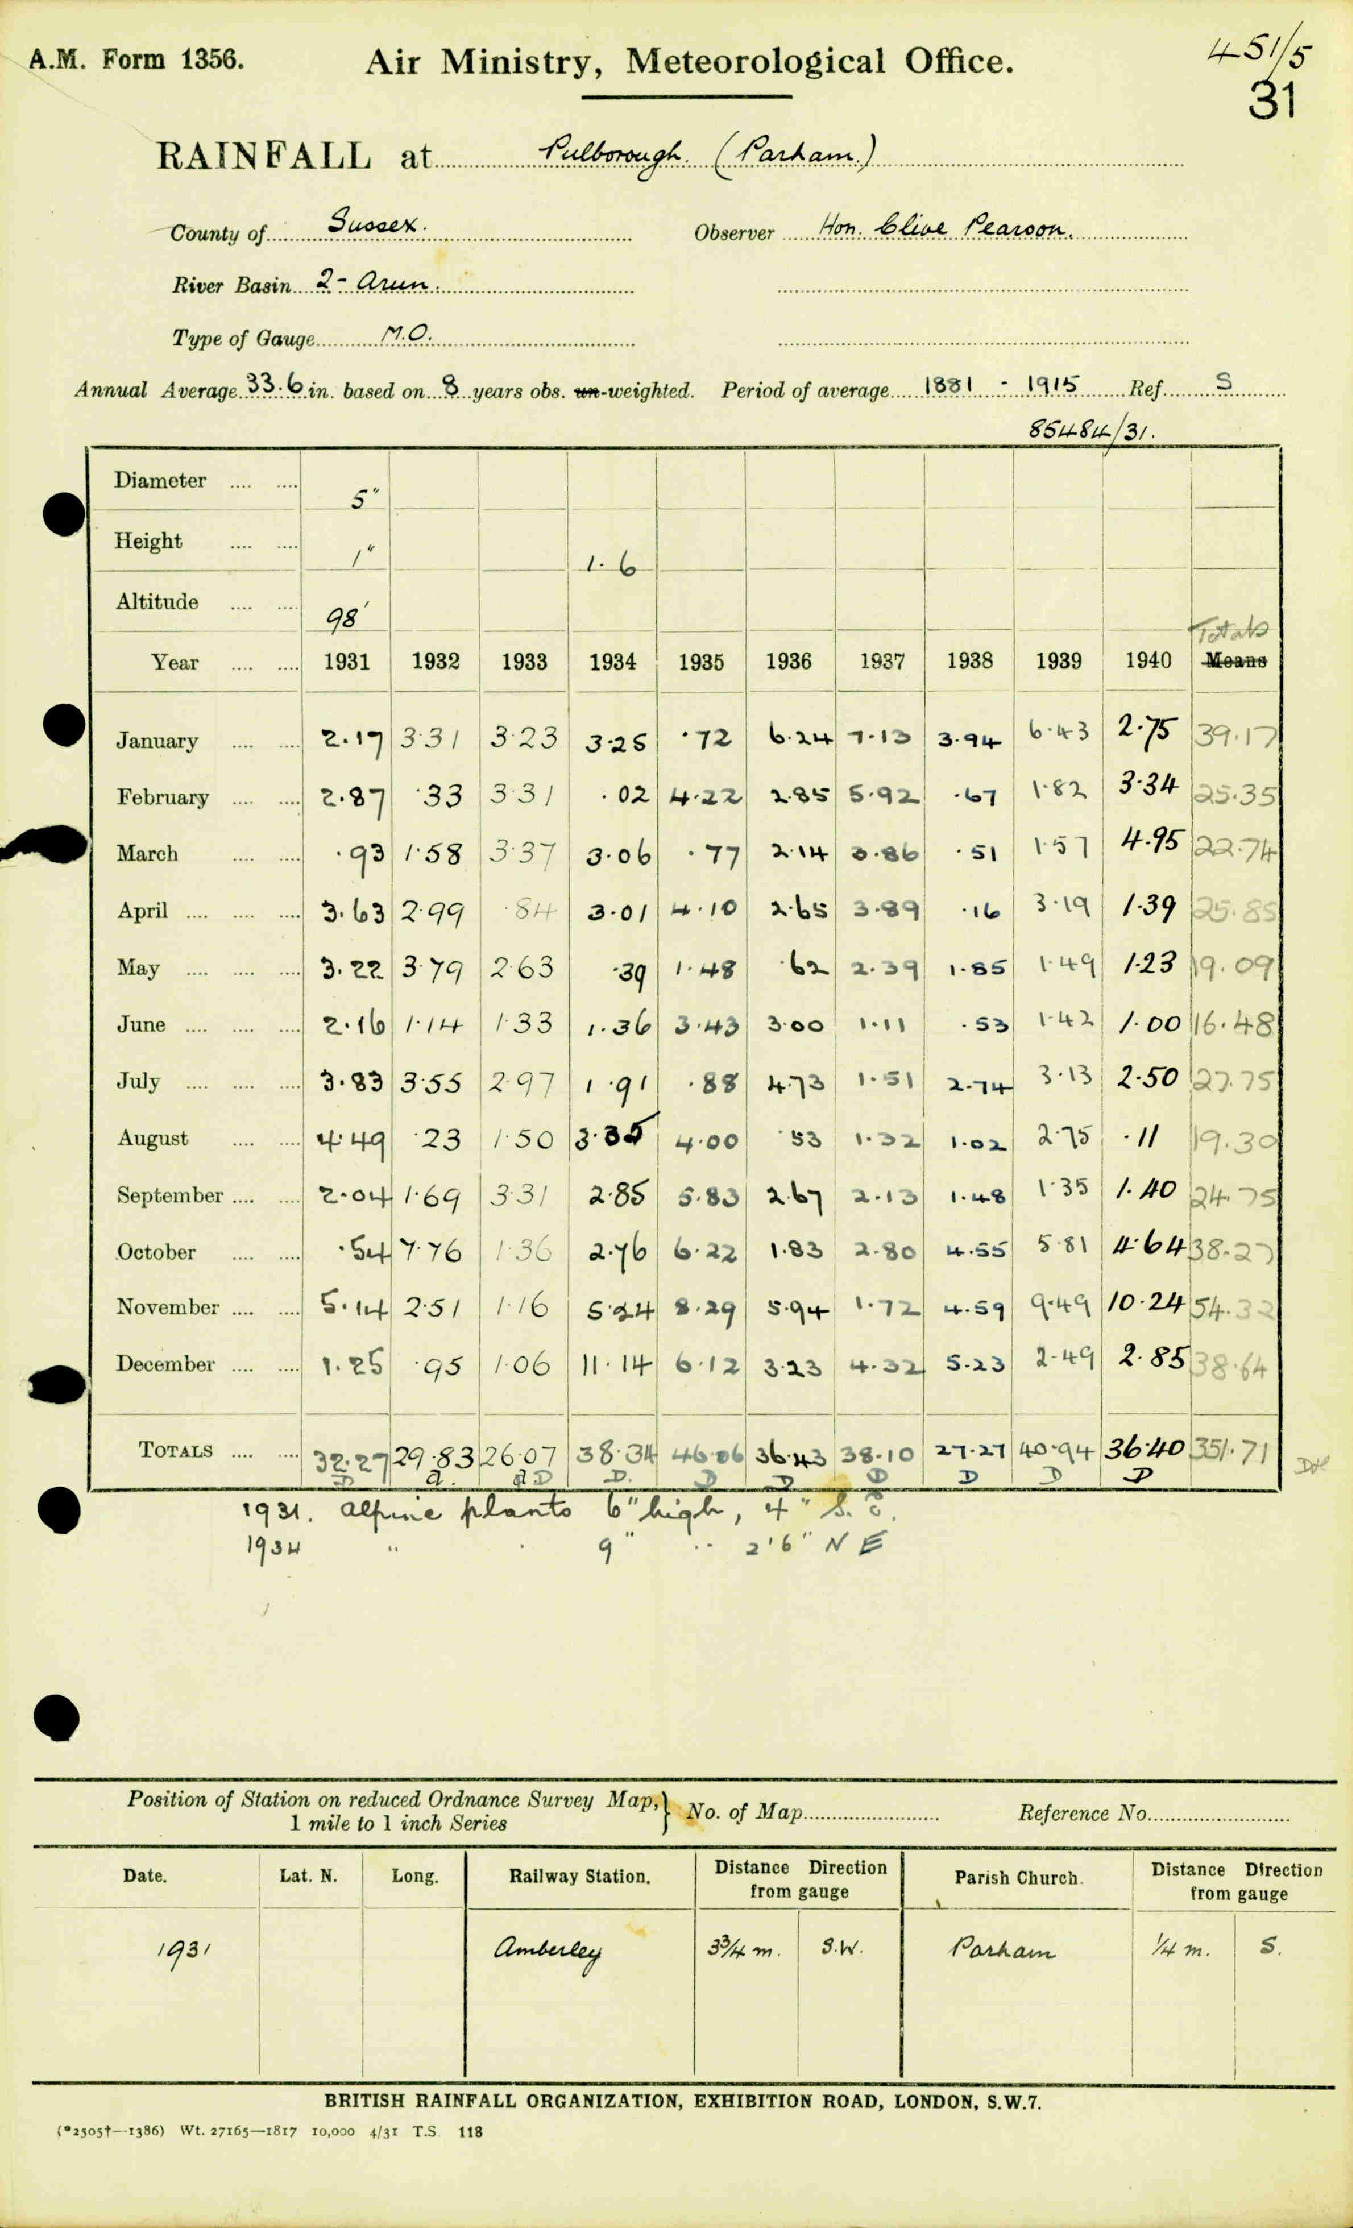 A.M. Form 1356.
Air Ministry, Meteorological Office.
451/5
31
RAINFALL at Pulborough. (Parham.)
County of Sussex. Observer Hon. Clive Pearson.
River Basin 2 - Arun.
Type of Gauge M.O.
Annual Average 33.6 in. based on 8 years obs. un-weighted. Period of average 1881 - 1915 Ref. S
85484/31.
Diameter 5"
Height 1" 1.6
Altitude 98'
Totals
Year 1931 1932 1933 1934 1935 1936 1937 1938 1939 1940 Means
January 2.17 3.31 3.23 3.25 .72 6.24 7.13 3.94 6.43 2.75 39.17
February 2.87 .33 3.31 .02 4.22 2.85 5.92 .67 1.82 3.34 25.35
March .93 1.58 3.37 3.06 .77 2.14 3.86 .51 1.57 4.95 22.74
April 3.63 2.99 .84 3.01 4.10 2.65 3.89 .16 3.19 1.39 25.85
May 3.22 3.79 2.63 .39 1.48 .62 2.39 1.85 1.49 1.23 19.09
June 2.16 1.14 1.33 1.36 3.43 3.00 1.11 .53 1.42 1.00 16.48
July 3.83 3.55 2.97 1.91 .88 4.73 1.51 2.74 3.13 2.50 27.75
August 4.49 .23 1.50 3.35 4.00 .53 1.32 1.02 2.75 .11 19.30
September 2.04 1.69 3.31 2.85 5.83 2.67 2.13 1.48 1.35 1.40 24.75
October .54 7.76 1.36 2.76 6.22 1.83 2.80 4.55 5.81 4.64 38.27
November 5.14 2.51 1.16 5.24 8.29 5.94 1.72 4.59 9.49 10.24 54.32
December 1.25 .95 1.06 11.14 6.12 3.23 4.32 5.23 2.49 2.85 38.64
TOTALS 32.27 29.83 26.07 38.34 46.06 36.43 38.10 27.27 40.94 36.40 351.71
1931. alpine plants 6" high, 4" S.
1934 " " 9" " 2'6" N E
Position of Station on reduced Ordnance Survey Map,} No. of Map Reference No.
1 mile to 1 inch Series
Date. Lat. N. Long. Railway Station. Distance Direction from gauge Parish Church. Distance Direction from gauge
1931 Amberley 3¾ m. S.W. Parham ¼ m. S.
BRITISH RAINFALL ORGANIZATION, EXHIBITION ROAD, LONDON, S.W.7.
(*2505†—1386) Wt. 27165—1817 10,000 4/31 T.S. 118